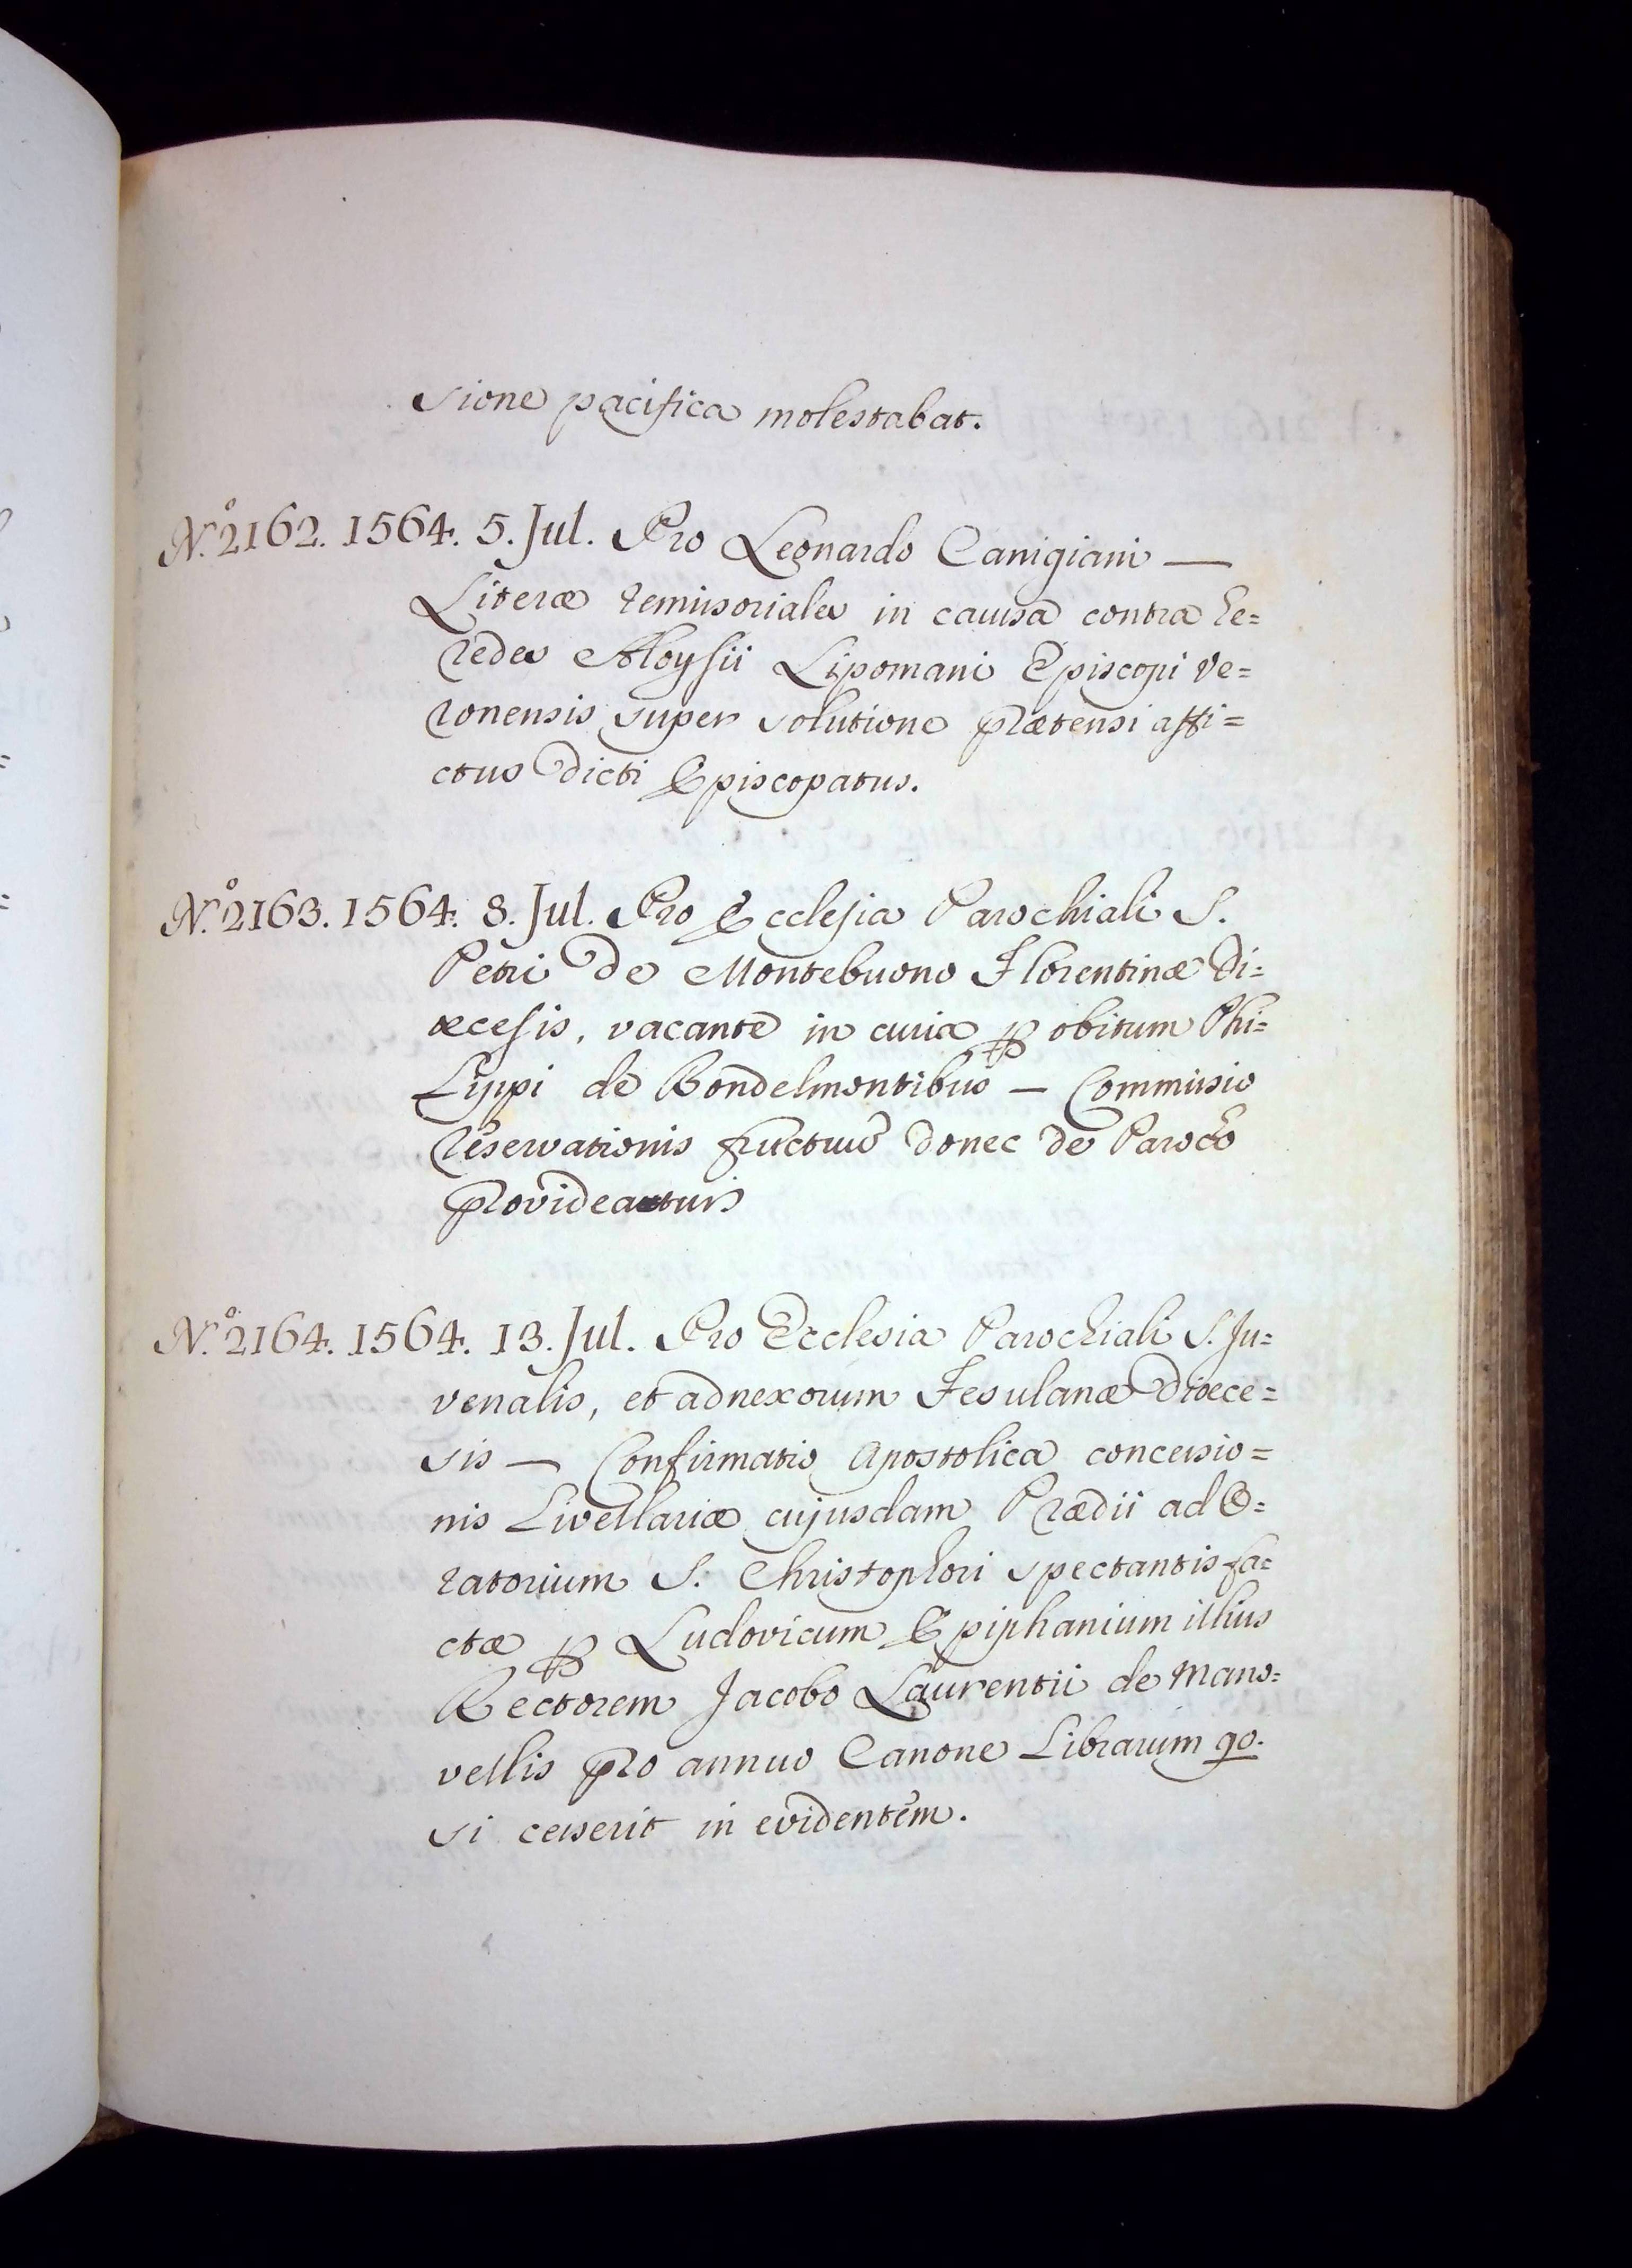 sione pacifica molestabat.
N.º 2162. 1564. 5. Jul. Pro Leonardo Canigiani —
Literæ remissoriales in causa contra he=
redes Aloysii Lipomani Episcopi Ve=
ronensis super solutione prætensi affi=
ctus dicti Episcopatus.
N.º 2163. 1564. 8. Jul. Pro Ecclesia Parochiali S.
Petri de Montebuono Florentinæ Di=
œcesis, vacante in curia ꝑ obitum Phi=
lippi de Bondelmontibus — Commissio
reservationis fructuũ donec de Parocho
provideatur
N.º 2164. 1564. 13. Jul. Pro Ecclesia Parochiali S. Ju=
venalis, et adnexorum Fesulanæ Diœce=
sis — Confirmatio Apostolica concessio=
nis Livellariæ cujusdam Prædii ad O=
ratorium S. Christophori spectantis fa=
ctæ ꝑ Ludovicum Epiphanium illius
Rectorem Jacobo Laurentii de Mano=
vellis pro annuo Canone Librarum 90.
si cesserit in evidentem.